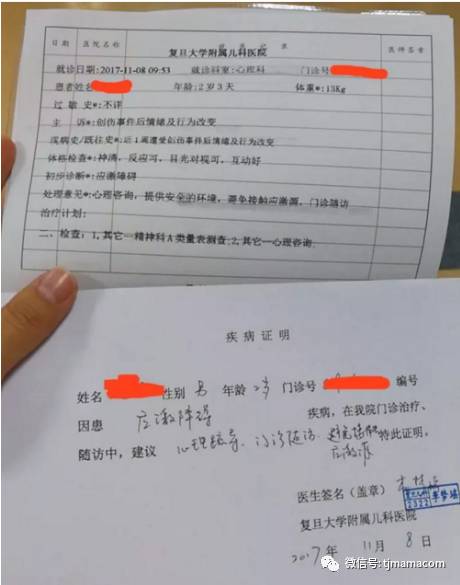 日期 医院名称 医师签章
复旦大学附属儿科医院
就诊日期:2017-11-08 09:53 就诊科室:心理科 门诊号
患者姓名 年龄:2岁3天 体重*:13Kg
过敏史*:不详
主诉*:创伤事件后情绪及行为改变
疾病史/既往史*:近1周遭受创伤事件后情绪及行为改变
体格检查*:神清,反应可,目光对视可,互动好
初步诊断*:应激障碍
处理意见*:心理咨询,提供安全的环境,避免接触应激源,门诊随访
治疗计划:
二、检查:1,其它--精神科A类量表测查;2,其它--心理咨询.
疾病证明
姓名 性别 男 年龄 2岁 门诊号 编号
因患 应激障碍 疾病,在我院门诊治疗、
随访中,建议 心理疏导、门诊随访、避免接触 特此证明。
应激源
医生签名(盖章)
复旦大学附属儿科医院
2017年 11月 8日
微信号: tjmamacom